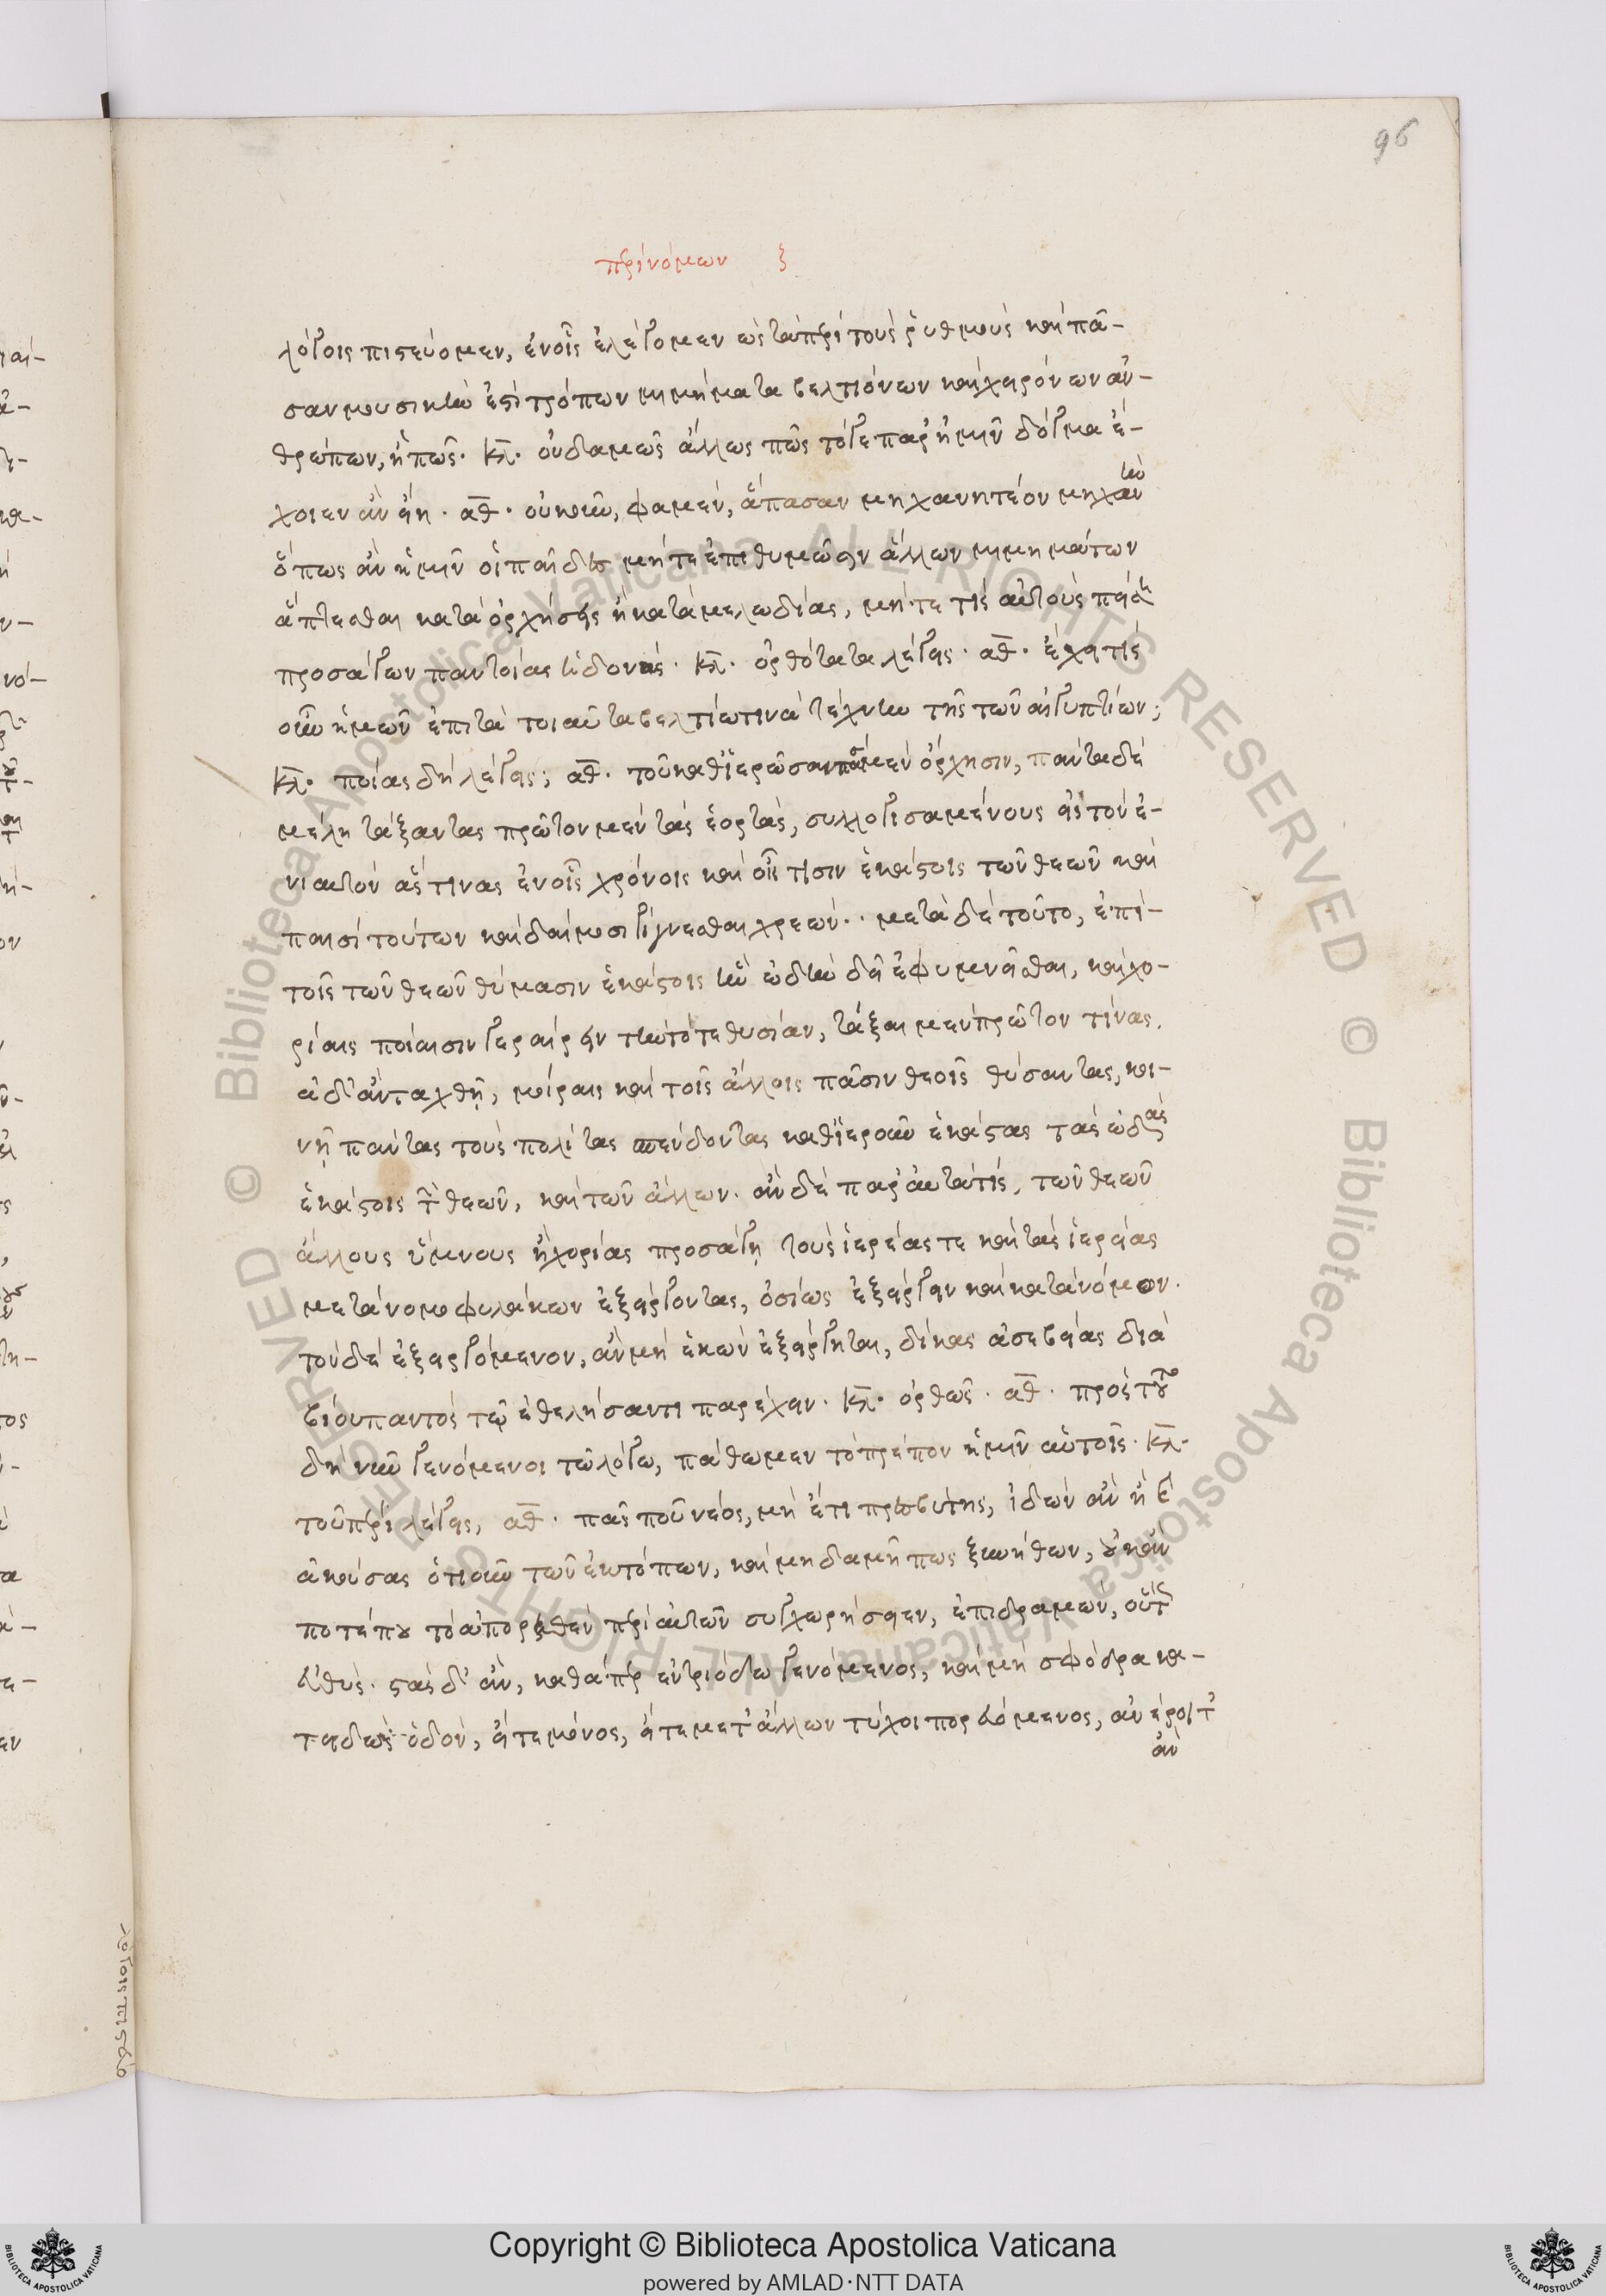 96
περὶ νόμων ζ
λόγοις πιστεύομεν, ἐν οἷς ἐλέγομεν ὡς τὰ περὶ τοὺς ῥυθμοὺς καὶ πᾶ-
σαν μουσικὴν ἐστὶ τρόπων μιμήματα βελτιόνων καὶ χειρόνων ἀν-
θρώπων, ἢ πῶς. κλ. οὐδαμῶς ἄλλως πῶς τό γε παρ' ἡμῖν δόγμα ἔ-
χοιεν ἂν εἴη. αθ. οὐκοῦν, φαμὲν, ἅπασαν μηχανητέον μηχανὴν
ὅπως ἂν ἡμῖν οἱ παῖδες μήτε ἐπιθυμῶσιν ἄλλων μιμημάτων
ἅπτεσθαι κατὰ ὀρχήσεις ἢ κατὰ μελωδίας, μήτε τις αὐτοὺς πείσει
προσάγων παντοίας ἡδονάς. κλ. ὀρθότατα λέγεις. αθ. ἔχει τις
οὖν ἡμῶν ἐπὶ τὰ τοιαῦτα βελτίω τινὰ τέχνην τῆς τῶν αἰγυπτίων;
κλ. ποίας δὴ λέγεις; αθ. τοῦ καθιερῶσαι πᾶσαν μὲν ὄρχησιν, πάντα δὲ
μέλη τάξαντας πρῶτον μὲν τὰς ἑορτὰς, συλλογισαμένους εἰς τὸν ἐ-
νιαυτὸν ἅς τινας ἐν οἷς χρόνοις καὶ οἷς τισιν ἑκάστοις τῶν θεῶν καὶ
παισὶ τούτων καὶ δαίμοσι γίγνεσθαι χρεών. μετὰ δὲ τοῦτο, ἐπὶ
τοῖς τῶν θεῶν θύμασιν ἑκάστοις ἣν ᾠδὴν δεῖ ἐφυμνεῖσθαι, καὶ χο-
ρείαις ποίαισιν γεραίρειν τὴν τότε θυσίαν, τάξαι μὲν πρῶτον τινας.
ἃ δ' ἂν ταχθῇ, μοίραις καὶ τοῖς ἄλλοις πᾶσιν θεοῖς θύσαντας, κοι-
νῇ πάντας τοὺς πολίτας σπένδοντας καθιεροῦν ἑκάστας τὰς ᾠδὰς
ἑκάστοις τῶν θεῶν, καὶ τῶν ἄλλων. ἂν δὲ παρ' αὐτά τις, τῶν θεῶν
ἄλλους ὕμνους ἢ χορείας προσάγῃ τοὺς ἱερέας τε καὶ τὰς ἱερείας
μετὰ νομοφυλάκων ἐξείργοντας, ὁσίως ἐξείργειν καὶ κατὰ νόμον.
τὸν δὲ ἐξειργόμενον, ἂν μὴ ἑκὼν ἐξείργηται, δίκας ἀσεβείας διὰ
βίου παντὸς τῷ ἐθελήσαντι παρέχειν. κλ. ὀρθῶς. αθ. πρὸς τούτῳ
δὴ νῦν γενόμενοι τῷ λόγῳ, πάθωμεν τὸ πρέπον ἡμῖν αὐτοῖς. κλ.
τοῦ περὶ λέγεις, αθ. πᾶς που νέος, μὴ ὅτι πρεσβύτης, ἰδὼν ἂν ἢ καὶ
ἀκούσας ὁτιοῦν τῶν ἐκτόπων, καὶ μηδαμῇ πως ξυνήθων, οὐκ ἄν
ποτέ που τὸ ἀπορηθὲν περὶ αὐτῶν συγχωρήσειεν, ἐπιδραμὼν, οὕτως
εὐθύς. στὰς δ' ἂν, καθάπερ ἐν τριόδῳ γενόμενος, καὶ μὴ σφόδρα κα-
τειδὼς ὁδὸν, εἴτε μόνος, εἴτε μετ' ἄλλων τύχοι πορευόμενος, ἀνέροιτ'
ἂν
λόγοις πιστεύο
Copyright © Biblioteca Apostolica Vaticana
powered by AMLAD·NTT DATA